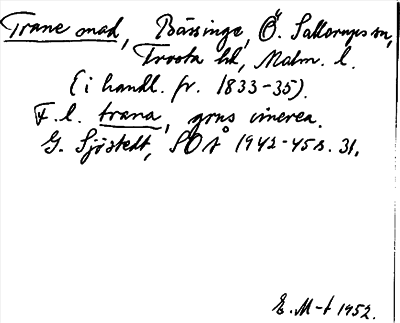 Trane mad, Bässinge, Ö. Sallerups sn,
Torna hd, Malm. l.
(i handl. fr. 1833-35).
F. l. trana, grus cinerea.
G. Sjöstedt, SOÅ 1942-45 s. 31.
E. M-t 1952.